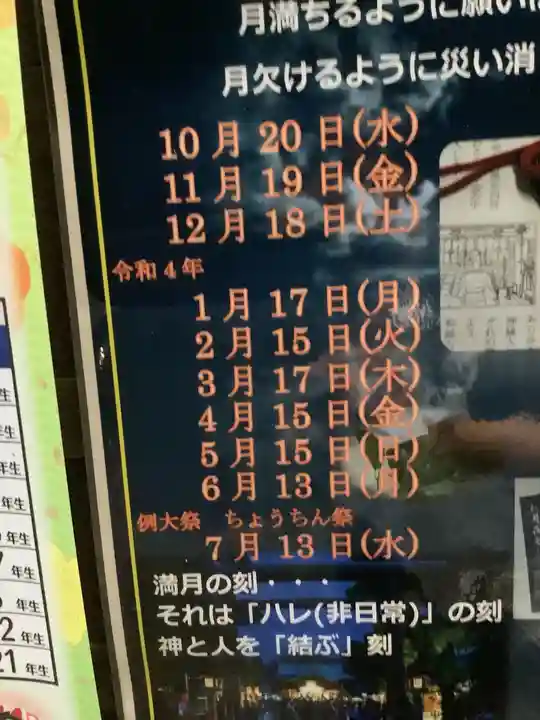 月満ちるように願い
月欠けるように災い消
10月20日(水)
11月19日(金)
12月18日(土)
令和4年
1月17日(月)
2月15日(火)
3月17日(木)
4月15日(金)
5月15日(日)
6月13日(月)
例大祭 ちょうちん祭
7月13日(水)
満月の刻・・・
それは「ハレ(非日常)」の刻
神と人を「結ぶ」刻
年生
年生
年生
年生
年生
年生
年生
2年生
21年生